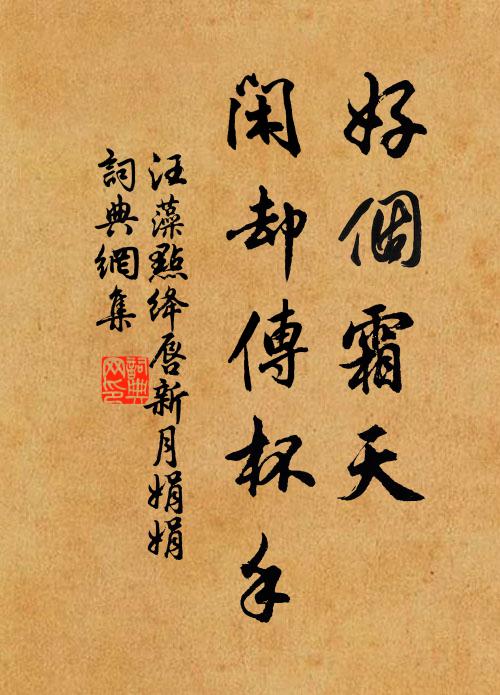 好個霜天
閑却傳杯手
汪藻點絳唇新月娟娟
詞典網集
詞典
网印